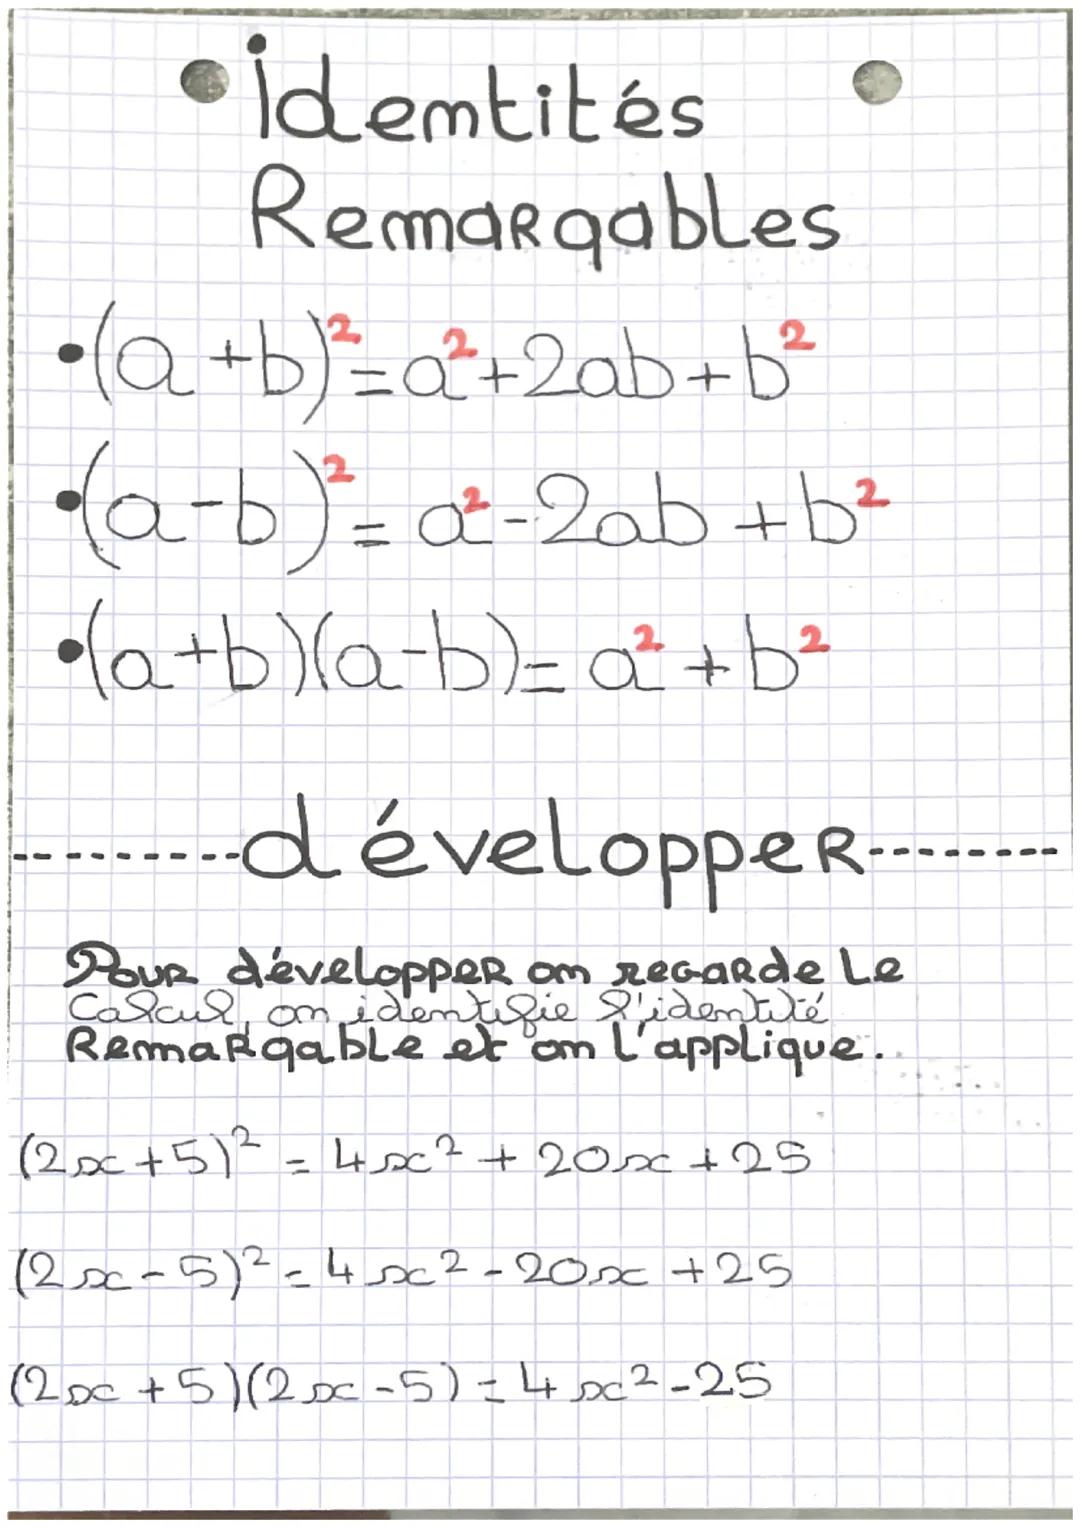 identités
Remarqables
•(a+b)²=a²+2ab+b²
•(a-b)²= a²-2ab+b²
•(a+b)(a-b)= a²+b²
---------développer--------
Pour développer on regarde le
calcul, on identifie l'identité
Remarqable et on l'applique.
(2x+5)² = 4x² + 20x + 25
(2x-5)² = 4x² - 20x + 25
(2x+5)(2x-5) = 4x² - 25